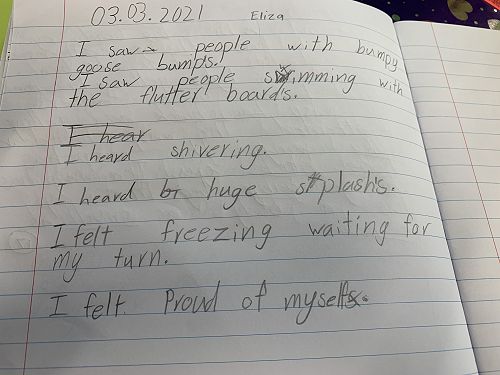 03.03.2021 Eliza
I saw people with bumpy
goose bumps.
I saw people swimming with
the flutter boards.
I hear
I heard shivering.
I heard huge splashs.
I felt freezing waiting for
my turn.
I felt. Proud of myself.